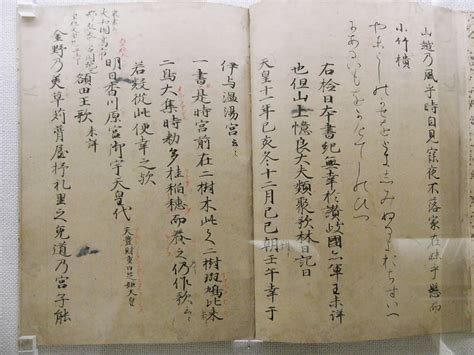 山越乃風乎時自見寐夜不落家在妹乎懸而
小竹樻
やまこしのかせをときしみぬるよおちすいへ
にあるいもをかけてしのひつ
右檢日本書紀無幸於讃岐國亦軍王未詳
也但山上憶良大夫類聚歌林曰記曰
天皇十一年己亥冬十二月己巳朔壬午幸于
伊与温湯宮云々
一書是時宮前在二樹木此之二樹斑鳩比米
二鳥大集時勅多挂稲穂而養之乃作歌云々
若疑從此便幸之歟
明日香川原宮御宇天皇代 天豊財重日足姫天皇
額田王歌 未詳
金野乃美草苅葺屋杼礼里之兎道乃宮子能